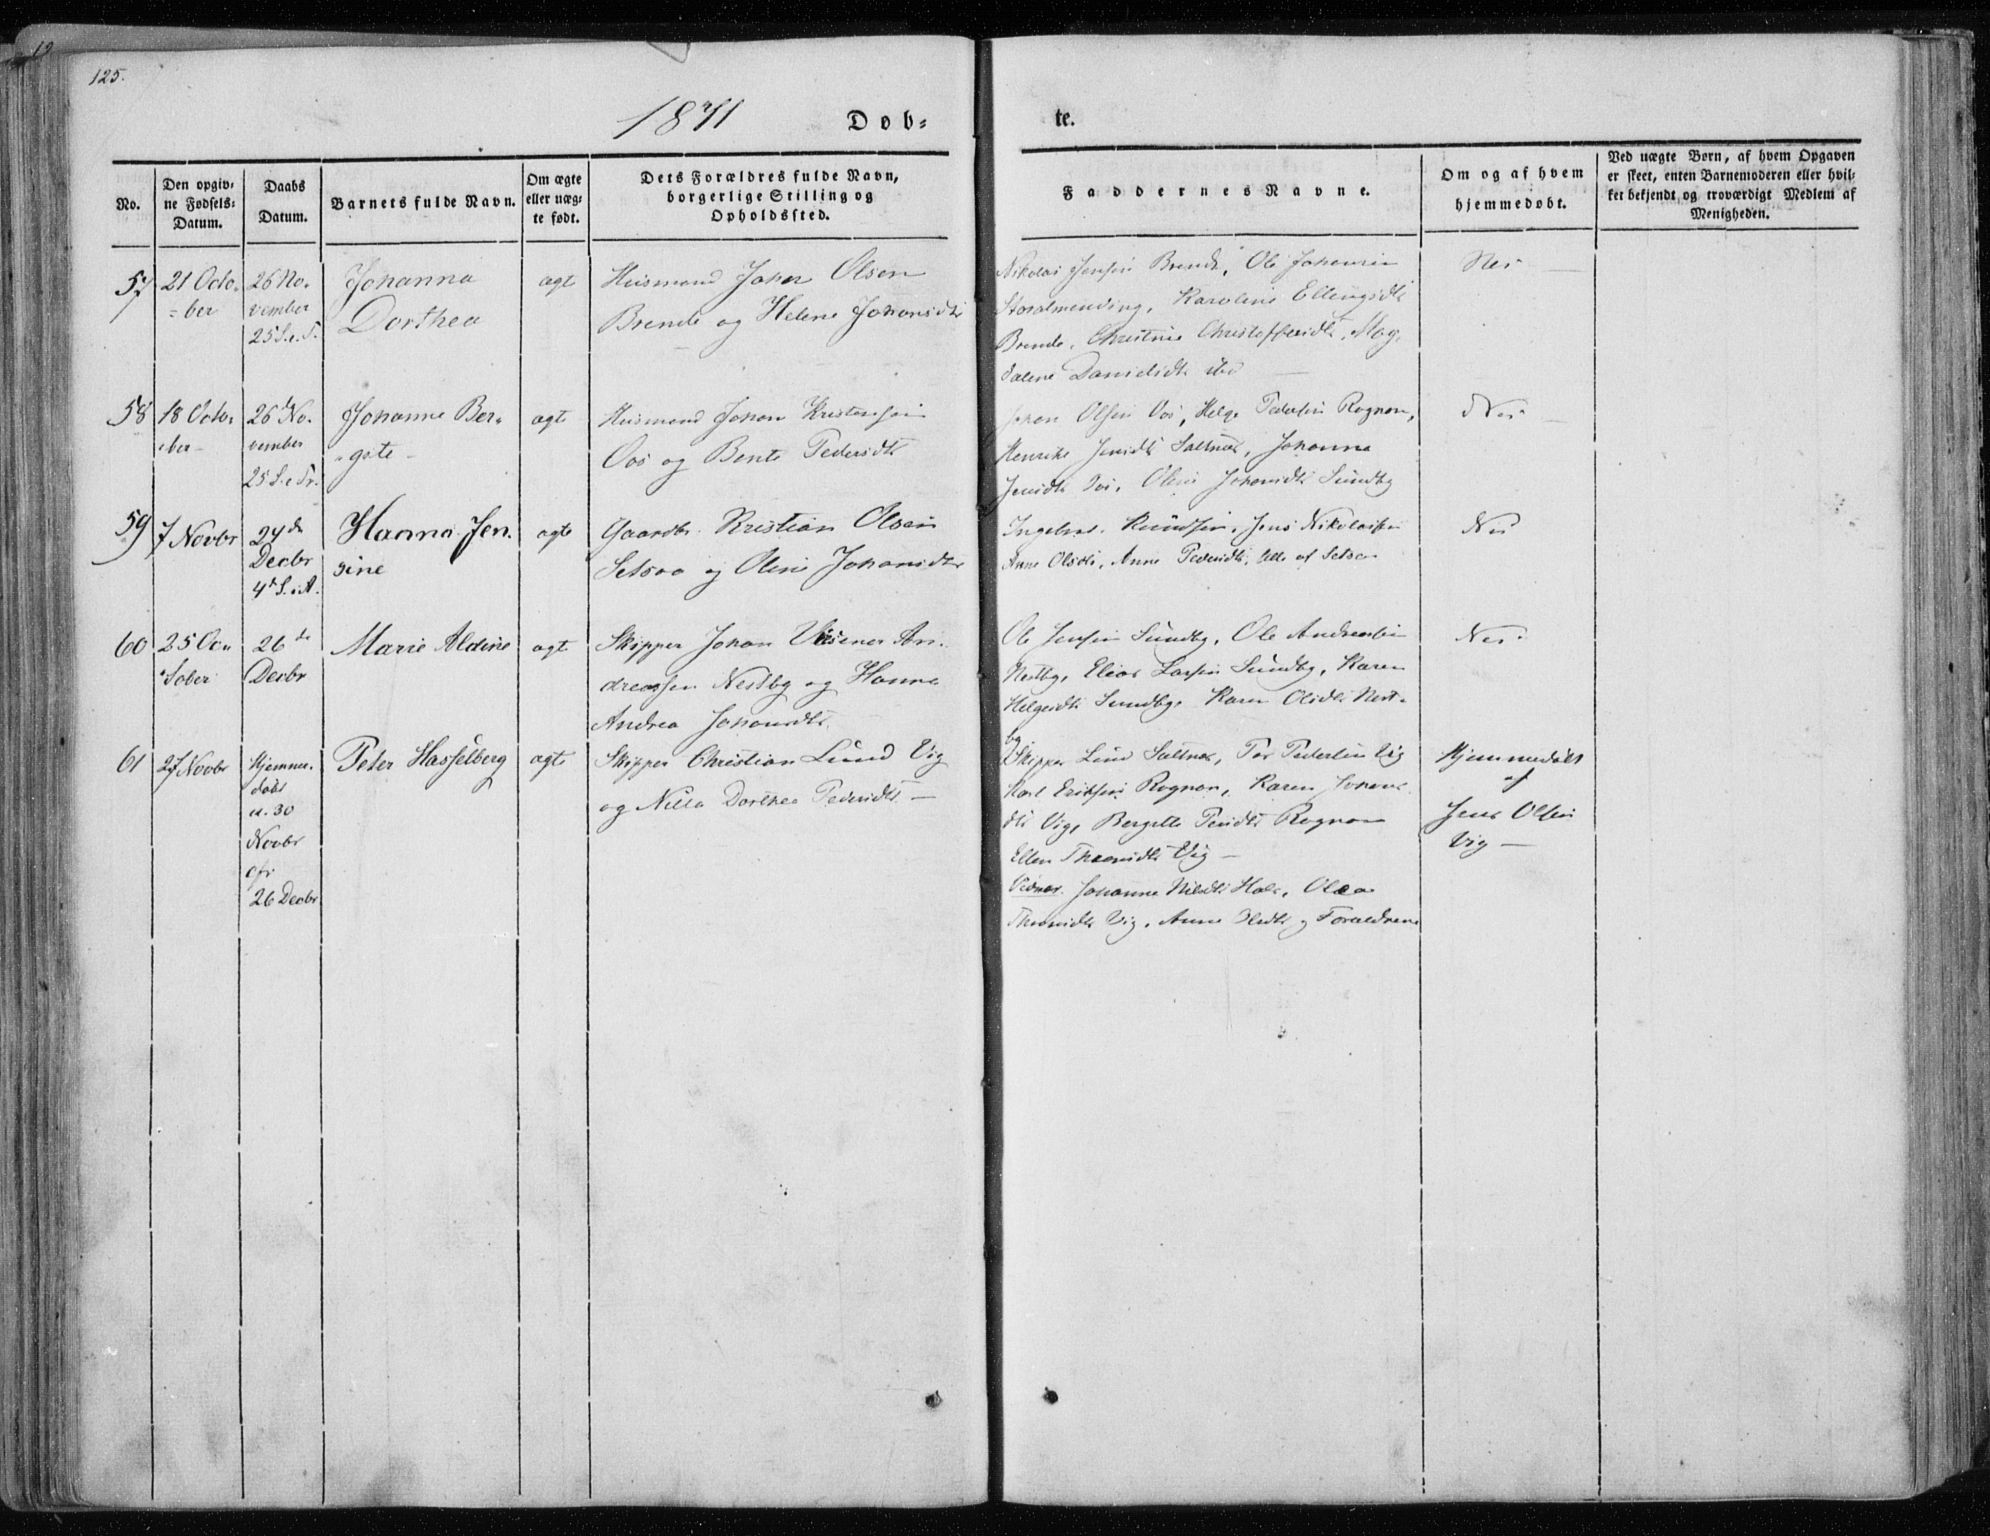 125.
1871
Døb=
te.
No.
Den opgiv=
ne Fødsels=
Datum.
Daabs
Datum.
Barnets fulde Navn.
Om ægte
eller uæg=
te født.
Dets Forældres fulde Navn,
borgerlige Stilling og
Opholdssted.
Faddernes Navne.
Om og af hvem
hjemmedøbt.
Ved uægte Børn, af hvem Opgaven
er skeet, enten Barnemoderen eller hvil=
ket bekjendt og troværdigt Medlem af
Menigheden.
57
21 Octo=
=ber
26 No=
vember
25 S. e. T.
Johanna
Dorthea
ægte
Husmand Johan Olsen
Brende og Helene Johansdtr
Nikolai Jensen Brende, Ole Johansen
Storalmending, Karoline Ellingsdtr
Brende, Christine Christoffersdtr, Mag=
dalene Danielsdtr ibd
Nei
58
18 Octo=
=ber
26 No=
vember
25 S. e. Tr.
Johanne Ber=
=gite
ægte
Husmand Johan Kristensen
Vos og Bente Pedersdtr
Johan Olsen Vos, Helge Pedersen Rognan,
Henrike Jensdtr Saltnes, Johanna
Jensdtr Vos, Oline Johansdtr Sundby
Nei
59
7 Novbr
24de
Decbr
4de S. i A.
Hanna Jen=
sine
ægte
Gaardbr. Kristian Olsen
Setsaa og Oline Johansdtr
Ingebret Knudsen, Jens Nikolaisen
Anne Olsdtr, Anne Pedersdtr, alle af Setsaa
Nei
60
25 Oc=
tober
26de
Decbr
Marie Aldine
ægte
Skipper Johan Andreassen Nestby og Hanna
Andrea Johansdtr
Ole Jensen Sundby, Ole Andreassen
Nestby, Elias Larsen Sundby, Karen
Helgesdtr Sundby, Karen Olsdtr Nest=
by
Nei
61
27 Novbr
Hjemme=
døbt
d. 30
Novbr
cfr
26 Decbr
Peter Hasselberg
ægte
Skipper Christian Lund Vig
og Nilsa Dorthea Pedersdtr
Skipper Lund Saltnes, Per Pedersen Vig
Karl Eriksen Rognan, Karen Johans=
dtr Vig, Bergitte Persdtr Rognan
Ellen Thomsdtr Vig
Vidner Johanne Nilsdtr Hals, Olea
Thomsdtr Vig, Anne Olsdtr og Forældrene
Hjemmedøbt
af
Jens Olsen
Vig